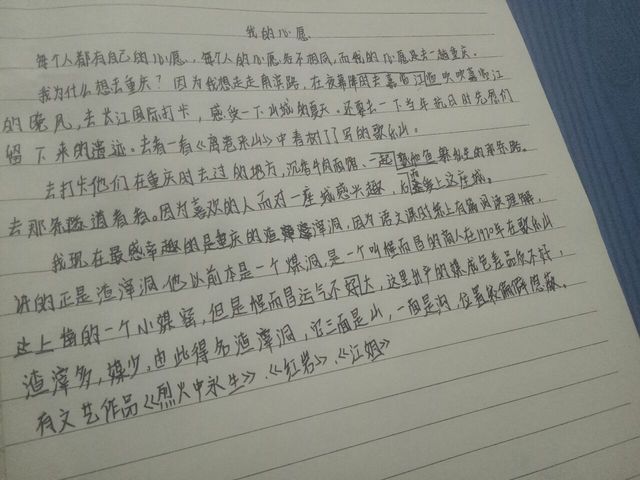 我的心愿
每个人都有自己的心愿，每个人的心愿各不相同，而我的心愿是去一趟重庆。
我为什么想去重庆？因为我想走走南滨路，在夜幕降临时去嘉陵江边吹吹嘉陵江
的晚风，去长江国际打卡，感受一下山城的夏天。还要去一下当年抗日时先烈们
留下来的遗迹。去看一看《离巷来山》中
去打卡他们在重庆时去过的地方，沉
去那条路逍看看。因为喜欢的人而对一座城感兴趣，上这座城。
我现在最感幸趣的是重庆的渣滓洞，因为语文课时练上有篇阅读理解，
讲的正是渣滓洞，他以前本是一个煤洞，是一个叫怪而昌的商人在1920年在歌乐山
上的一个小媒窑，但是怪而昌运气不好，这里出产的煤成色差品质不好，
渣滓多，媒少，由此得名渣滓洞，它三面是山，一面是沟，位置较隐蔽。
有文艺作品《烈火中永生》、《红岩》、《江姐》